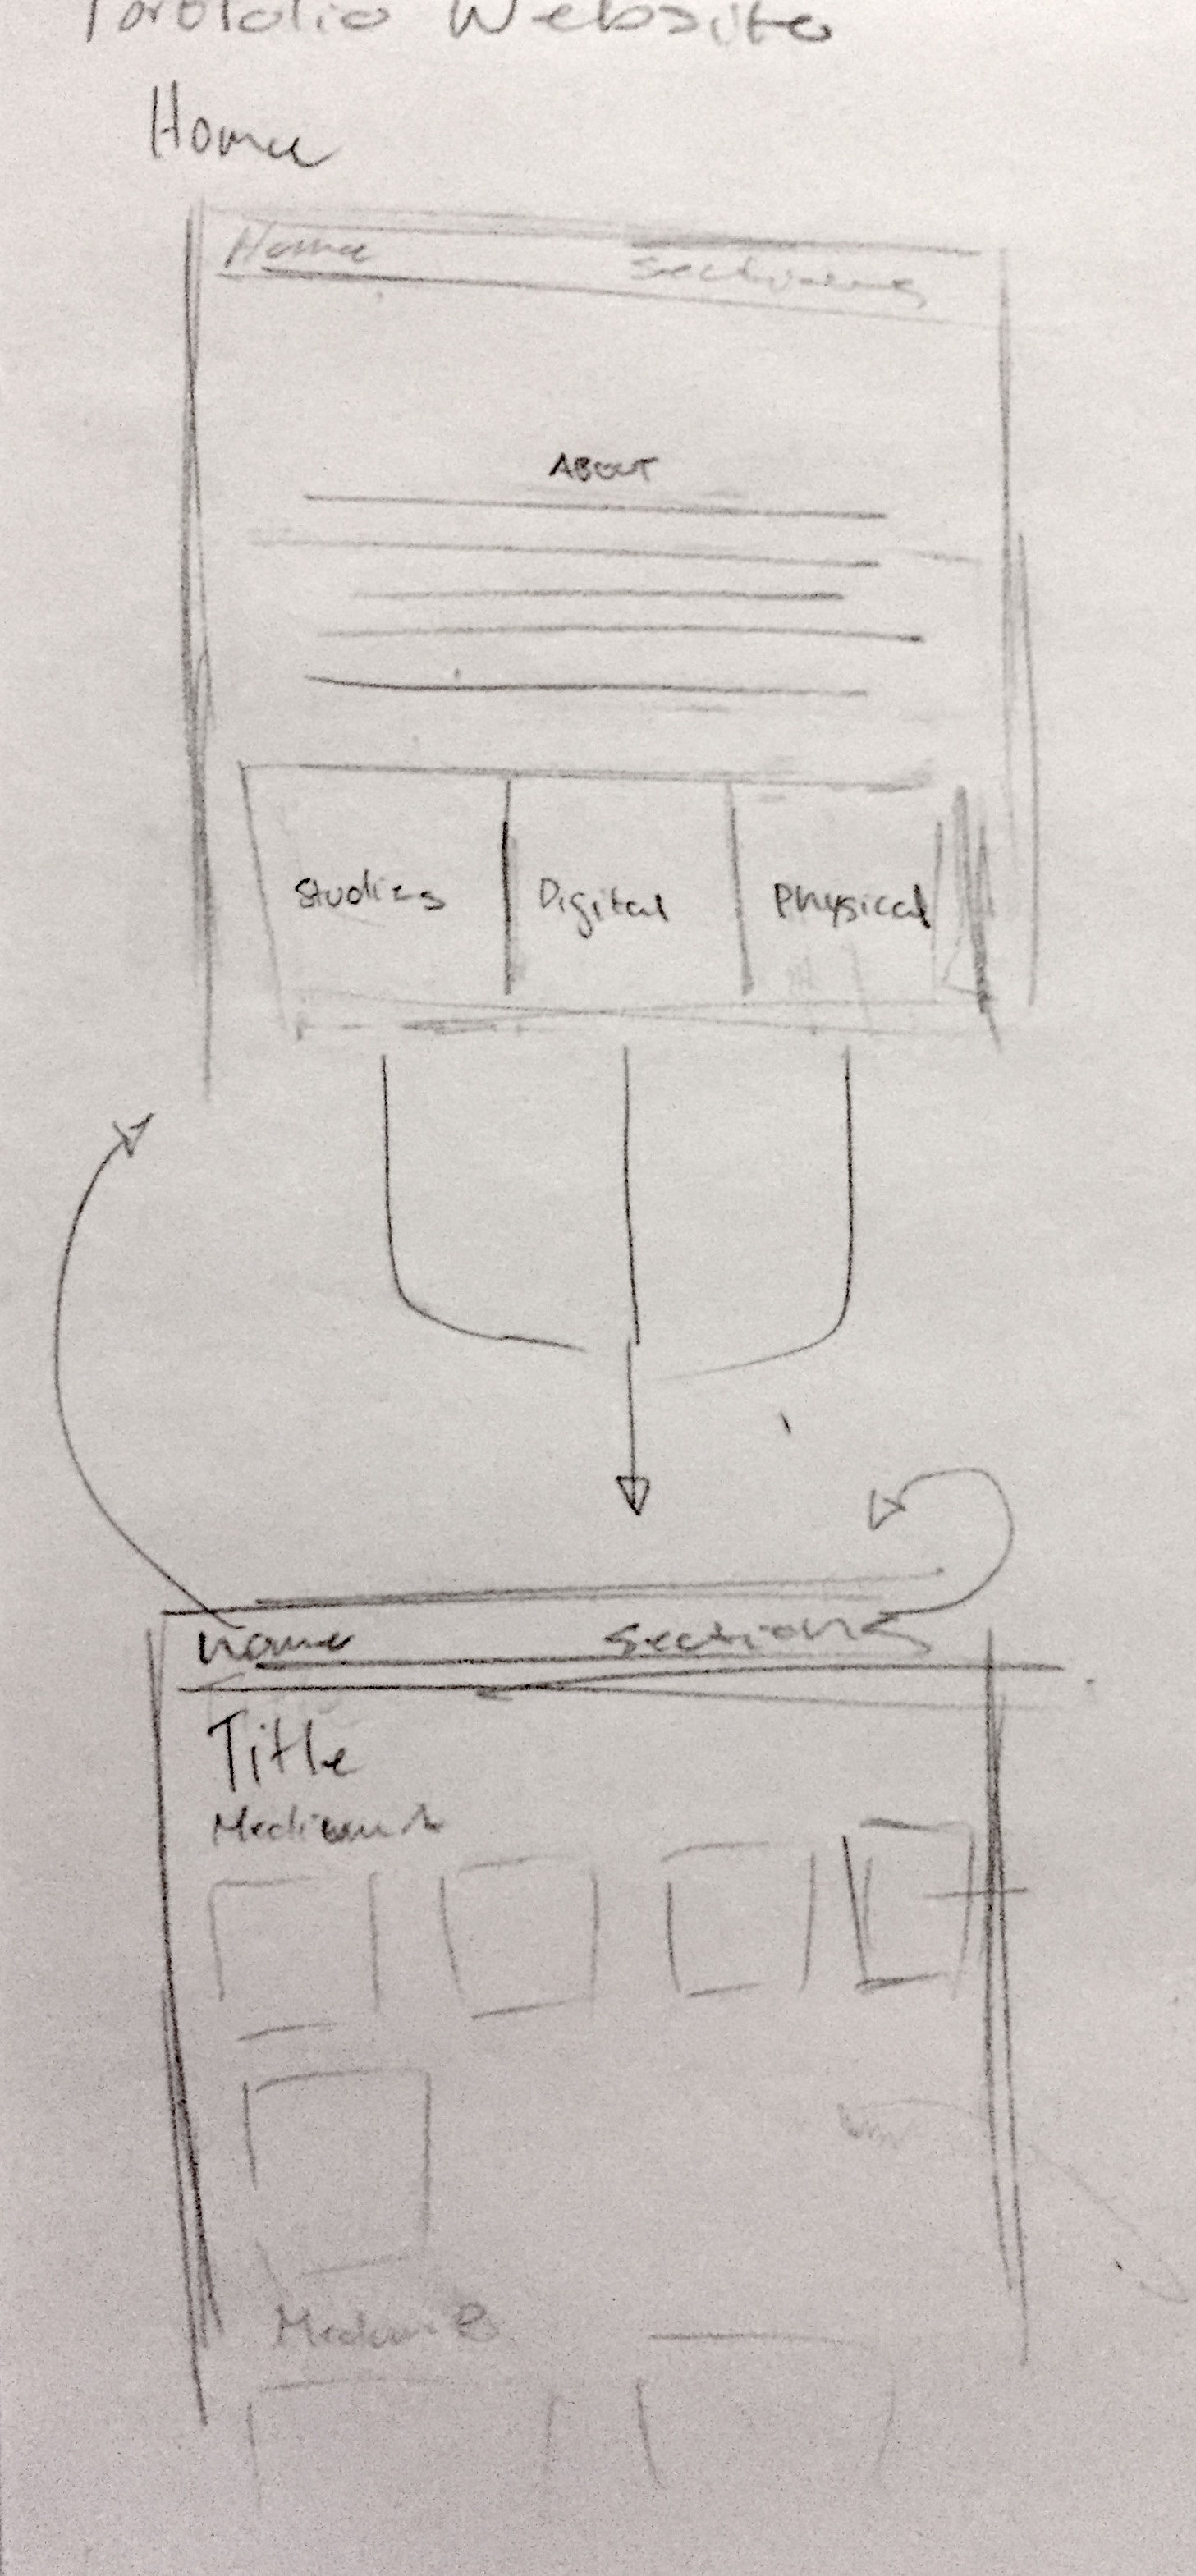 Portfolio Website
Home
Home Sections
ABOUT
Studies Digital Physical
home Sections
Title
Medium A
Medium B